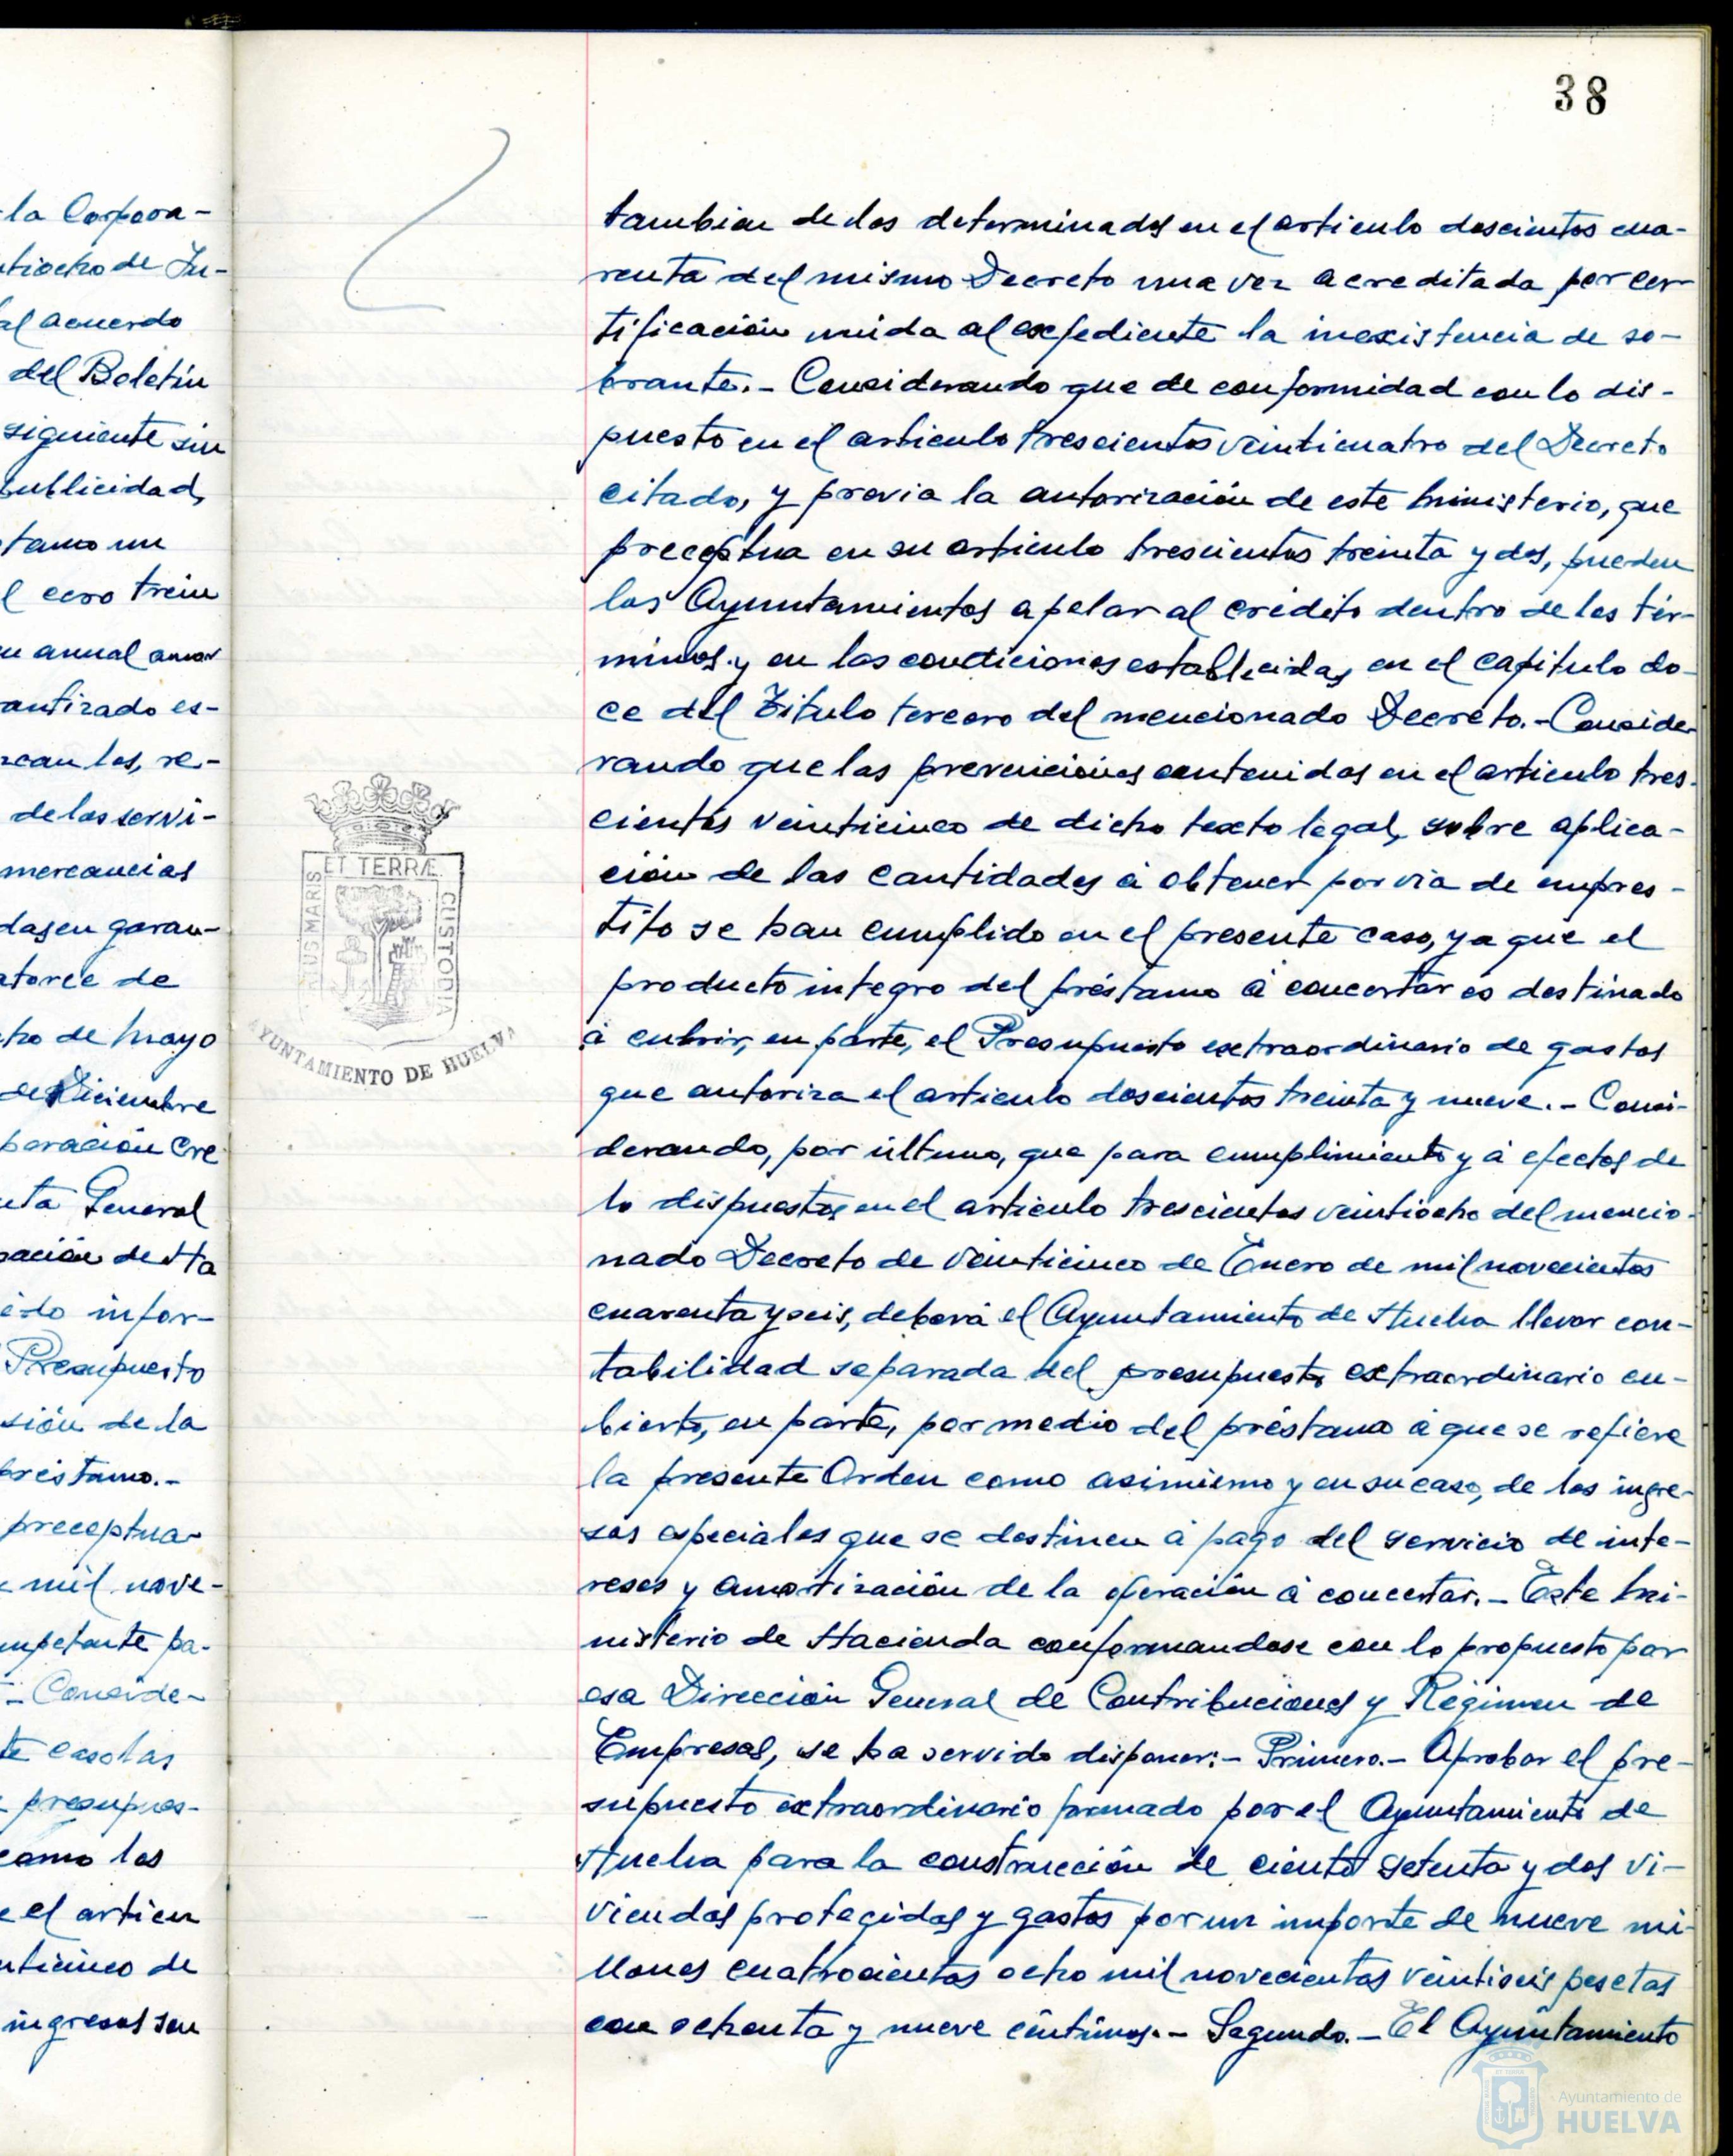 38
la Corpora-
tiocho de Ju-
al acuerdo
del Boletín
siguiente sin
publicidad,
tamo un
l cero trein
n anual amor
antizado es-
rcan los, re-
de los servi-
mercancias
das en garan-
atorce de
cho de Mayo
de Diciembre
poración cre
nta General
pación de Ha
ido infor-
Presupuesto
sión de la
préstamo.-
preceptua-
e mil nove-
mpetente pa-
- Conside-
te caso las
presupues-
como los
e el articu
nticinco de
ingresos son
tambien de los determinados en el articulo doscientos cua-
renta del mismo Decreto una vez acreditada por cer-
tificación unida al expediente la inexistencia de so-
brante.- Considerando que de conformidad con lo dis-
puesto en el articulo trescientos veinticuatro del Decreto
citado, y previa la autorización de este Ministerio, que
preceptua en su articulo trescientos treinta y dos, pueden
los Ayuntamientos apelar al crédito dentro de los tér-
minos y en las condiciones establecidas en el capitulo do-
ce del Titulo tercero del mencionado Decreto.- Conside-
rando que las prevenciones contenidas en el articulo tres-
cientos veinticinco de dicho texto legal, sobre aplica-
ción de las cantidades á obtener por via de empres-
tito se han cumplido en el presente caso, ya que el
producto integro del préstamo á concertar es destinado
á cubrir, en parte, el Presupuesto extraordinario de gastos
que autoriza el articulo doscientos treinta y nueve.- Consi-
derando, por último, que para cumplimiento y á efectos de
lo dispuesto en el articulo trescientos veintiocho del mencio-
nado Decreto de veinticinco de Enero de mil novecientos
cuarenta y seis, deberá el Ayuntamiento de Huelva llevar con-
tabilidad separada del presupuesto extraordinario cu-
bierto, en parte, por medio del préstamo á que se refiere
la presente Orden como asimismo y en su caso, de los ingre-
sos especiales que se destinen á pago del servicio de inte-
reses y amortización de la operación á concertar.- Este Mi-
nisterio de Hacienda conformandose con lo propuesto por
esa Dirección General de Contribuciones y Régimen de
Empresas, se ha servido disponer:- Primero.- Aprobar el pre-
supuesto extraordinario formado por el Ayuntamiento de
Huelva para la construcción de ciento setenta y dos vi-
viendas protegidas y gastos por un importe de nueve mi-
llones cuatrocientas ocho mil novecientas veintiseis pesetas
con ochenta y nueve céntimos.- Segundo.- El Ayuntamiento
ET TERRÆ
CUSTODIA
TUS MARIS
AYUNTAMIENTO DE HUELVA
Ayuntamiento de
HUELVA